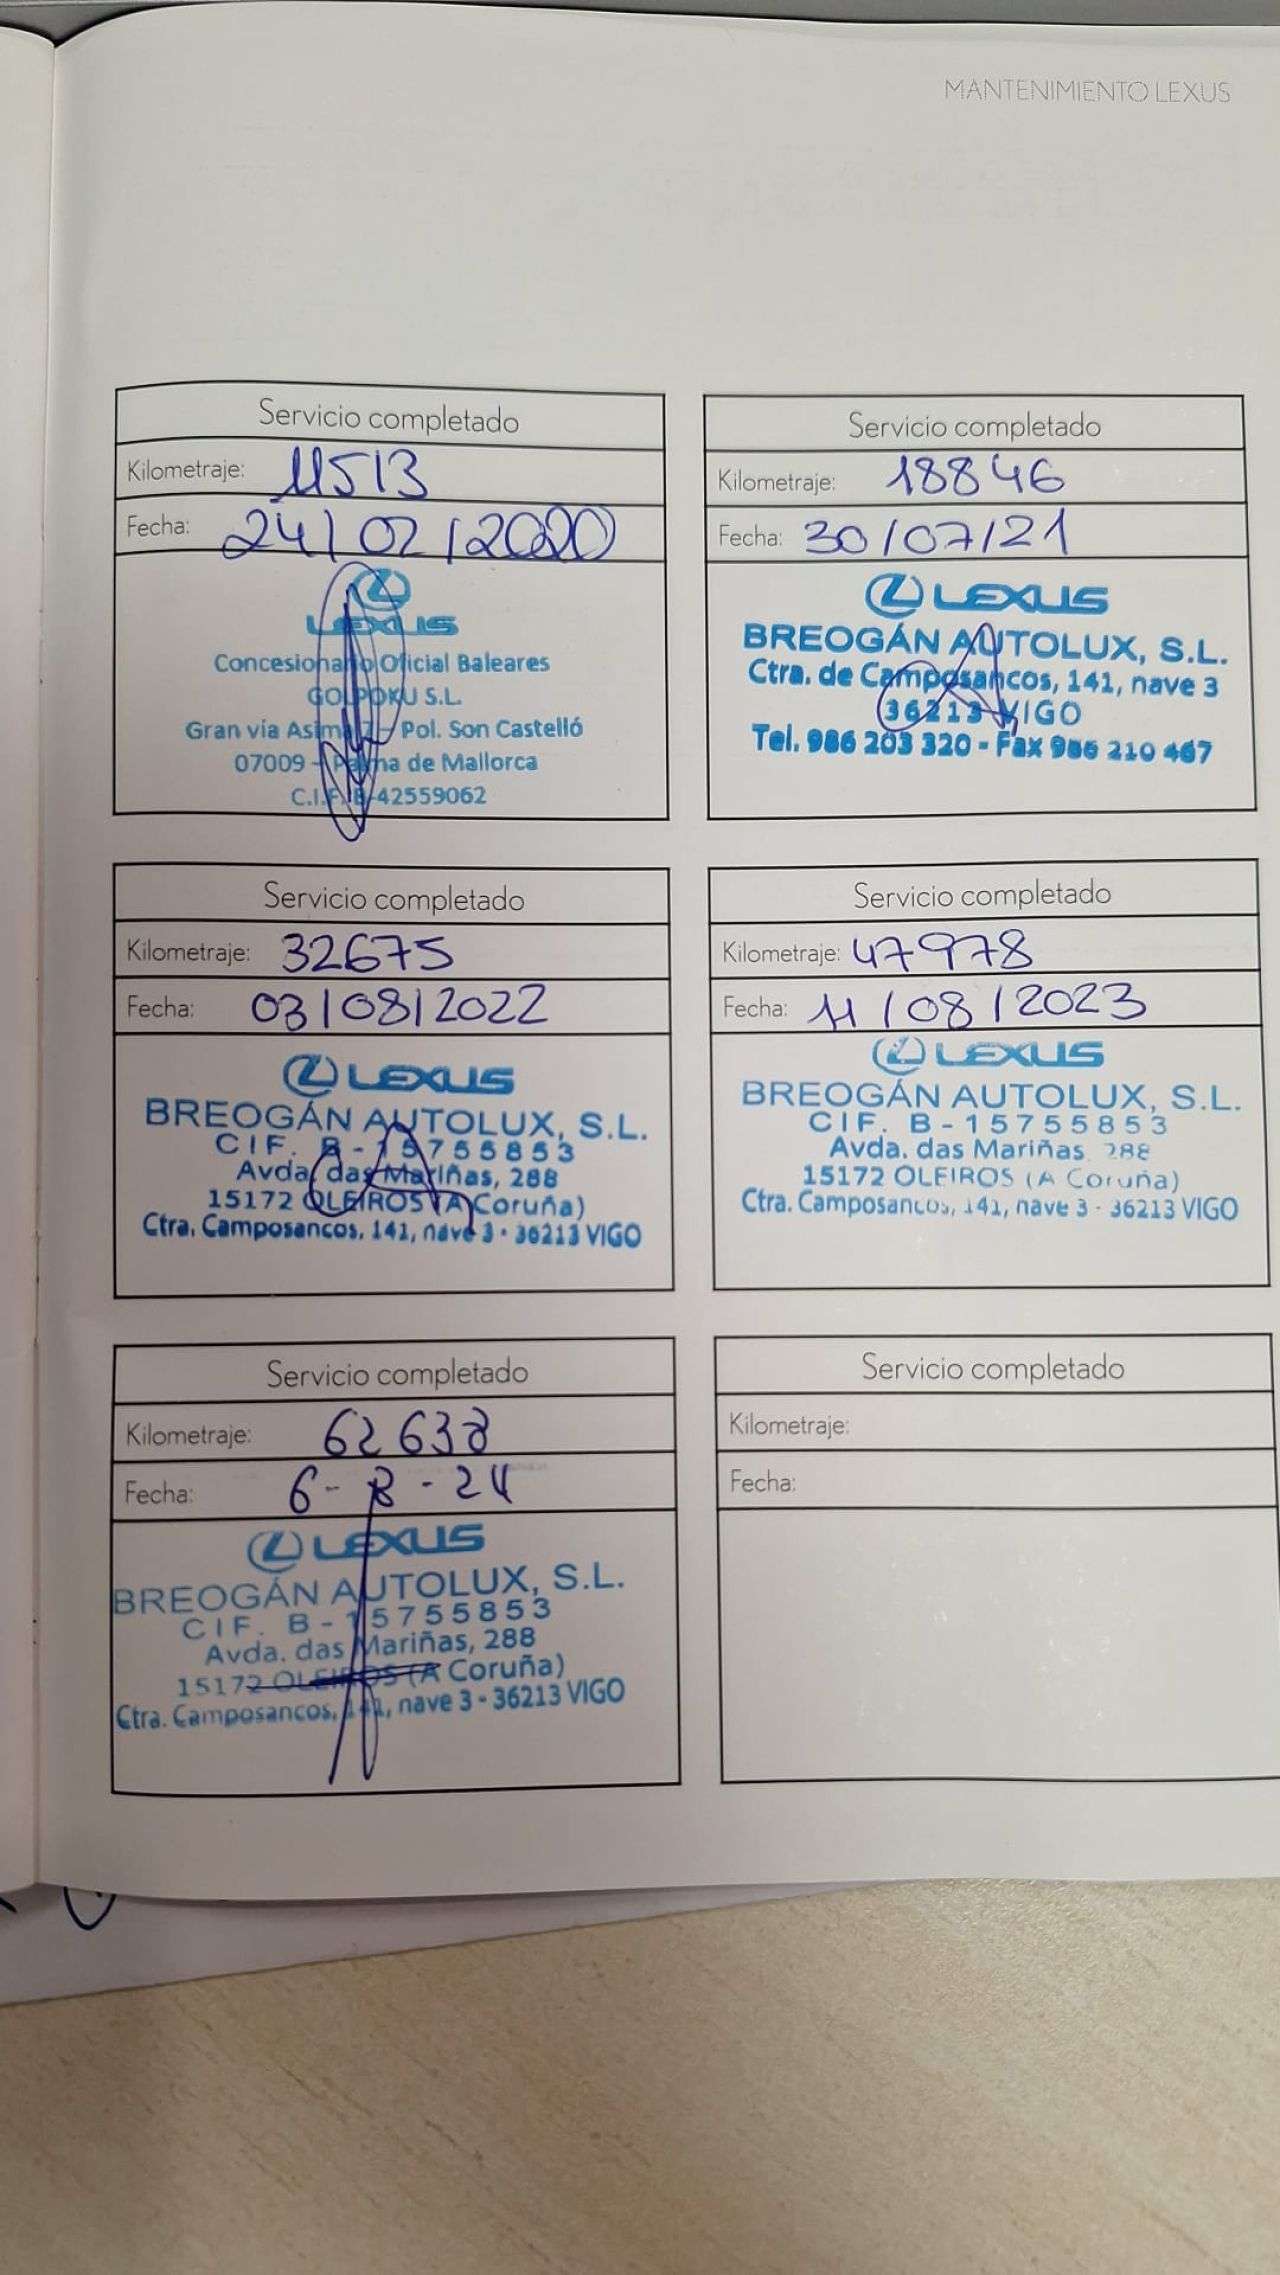 MANTENIMIENTO LEXUS
Servicio completado
Kilometraje: 11513
Fecha: 24/02/2020
LEXUS
Concesionario Oficial Baleares
GOLPOKU S.L.
Gran via Asima, Pol. Son Castelló
07009 - Palma de Mallorca
C.I.F. B-42559062
Servicio completado
Kilometraje: 18846
Fecha: 30/07/21
LEXUS
BREOGÁN AUTOLUX, S.L.
Ctra. de Camposancos, 141, nave 3
36213 VIGO
Tel. 986 203 320 - Fax 986 210 467
Servicio completado
Kilometraje: 32675
Fecha: 03/08/2022
LEXUS
BREOGÁN AUTOLUX, S.L.
CIF. B-15755853
Avda. das Mariñas, 288
15172 OLEIROS (A Coruña)
Ctra. Camposancos, 141, nave 3 - 36213 VIGO
Servicio completado
Kilometraje: 47978
Fecha: 11/08/2023
LEXUS
BREOGÁN AUTOLUX, S.L.
CIF. B-15755853
Avda. das Mariñas, 288
15172 OLEIROS (A Coruña)
Ctra. Camposancos, 141, nave 3 - 36213 VIGO
Servicio completado
Kilometraje: 62638
Fecha: 6-8-24
LEXUS
BREOGÁN AUTOLUX, S.L.
CIF. B-15755853
Avda. das Mariñas, 288
15172 OLEIROS (A Coruña)
Ctra. Camposancos, 141, nave 3 - 36213 VIGO
Servicio completado
Kilometraje:
Fecha: